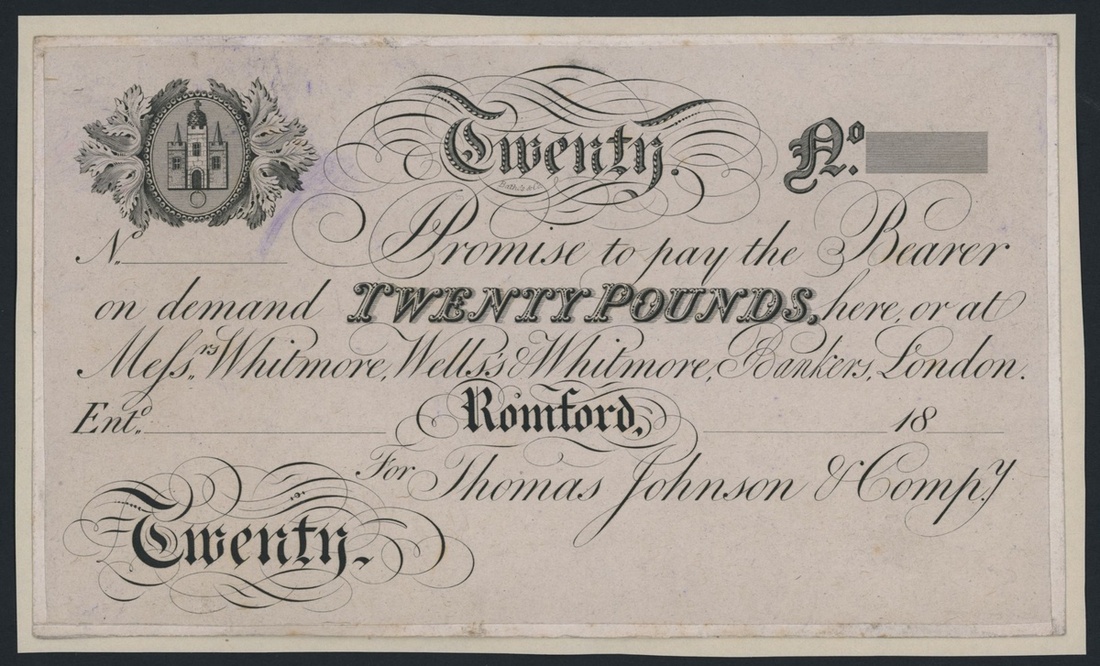 Twenty.
No.
No. Promise to pay the Bearer
on demand TWENTY POUNDS, here, or at
Messrs. Whitmore, Wells's & Whitmore, Bankers, London.
Ento. Romford, 18
For Thomas Johnson & Compy.
Twenty.